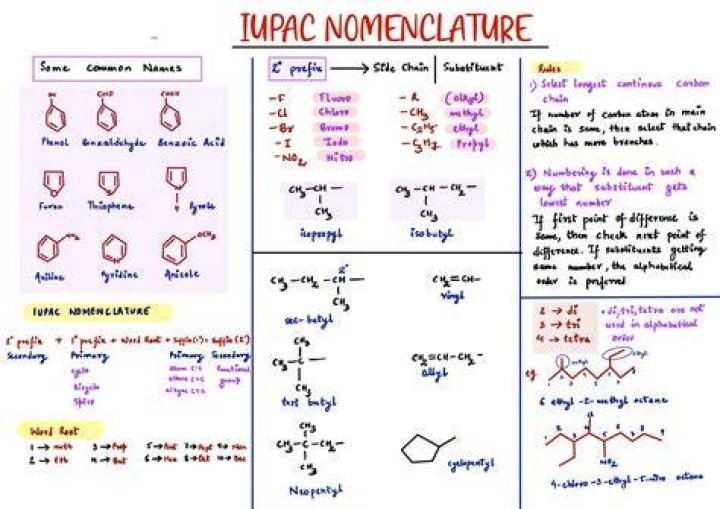 IUPAC NOMENCLATURE
Some Common Names
OH
CHO
COOH
Phenol Benzaldehyde Benzoic Acid
Furan Thiophene Pyrole
Aniline Pyridine Anisole
IUPAC NOMENCLATURE
2° prefix + 1° prefix + Word Root + Suffix(1°) + Suffix(2°)
Secondary Primary Primary Secondary
cyclo alkane C-C functional
Bicyclo alkene C=C group
Spiro alkyne C≡C
Word Root
1 → meth 3 → Prop 5 → Pent 7 → Hept 9 → Non
2 → Eth 4 → But 6 → Hex 8 → Oct 10 → Dec
2° prefix → Side Chain Substituent
-F Fluoro -R (alkyl)
-Cl Chloro -CH3 methyl
-Br Bromo -C2H5 ethyl
-I Iodo -C3H7 Propyl
-NO2 Nitro
CH3-CH- CH3-CH-CH2-
CH3 CH3
isopropyl isobutyl
2°
CH3-CH2-CH- CH2=CH-
CH3 vinyl
sec-butyl
CH3
CH3-C- CH2=CH-CH2-
CH3 allyl
tert butyl
CH3
CH3-C-CH2-
CH3
cyclopentyl
Neopentyl
Rules
1) Select longest continous carbon
chain
If number of carbon atom in main
chain is same, then select that chain
which has more branches.
2) Numbering is done in such a
way that substituent gets
lowest number
If first point of difference is
same, then check next point of
difference. If substituents getting
same number, the alphabetical
order is preferred
2 → di • di, tri, tetra are not
3 → tri used in alphabetical
4 → tetra order
eg
methyl
ethyl
6 ethyl-2-methyl octane
NO2
4-chloro-3-ethyl-5-nitro octane